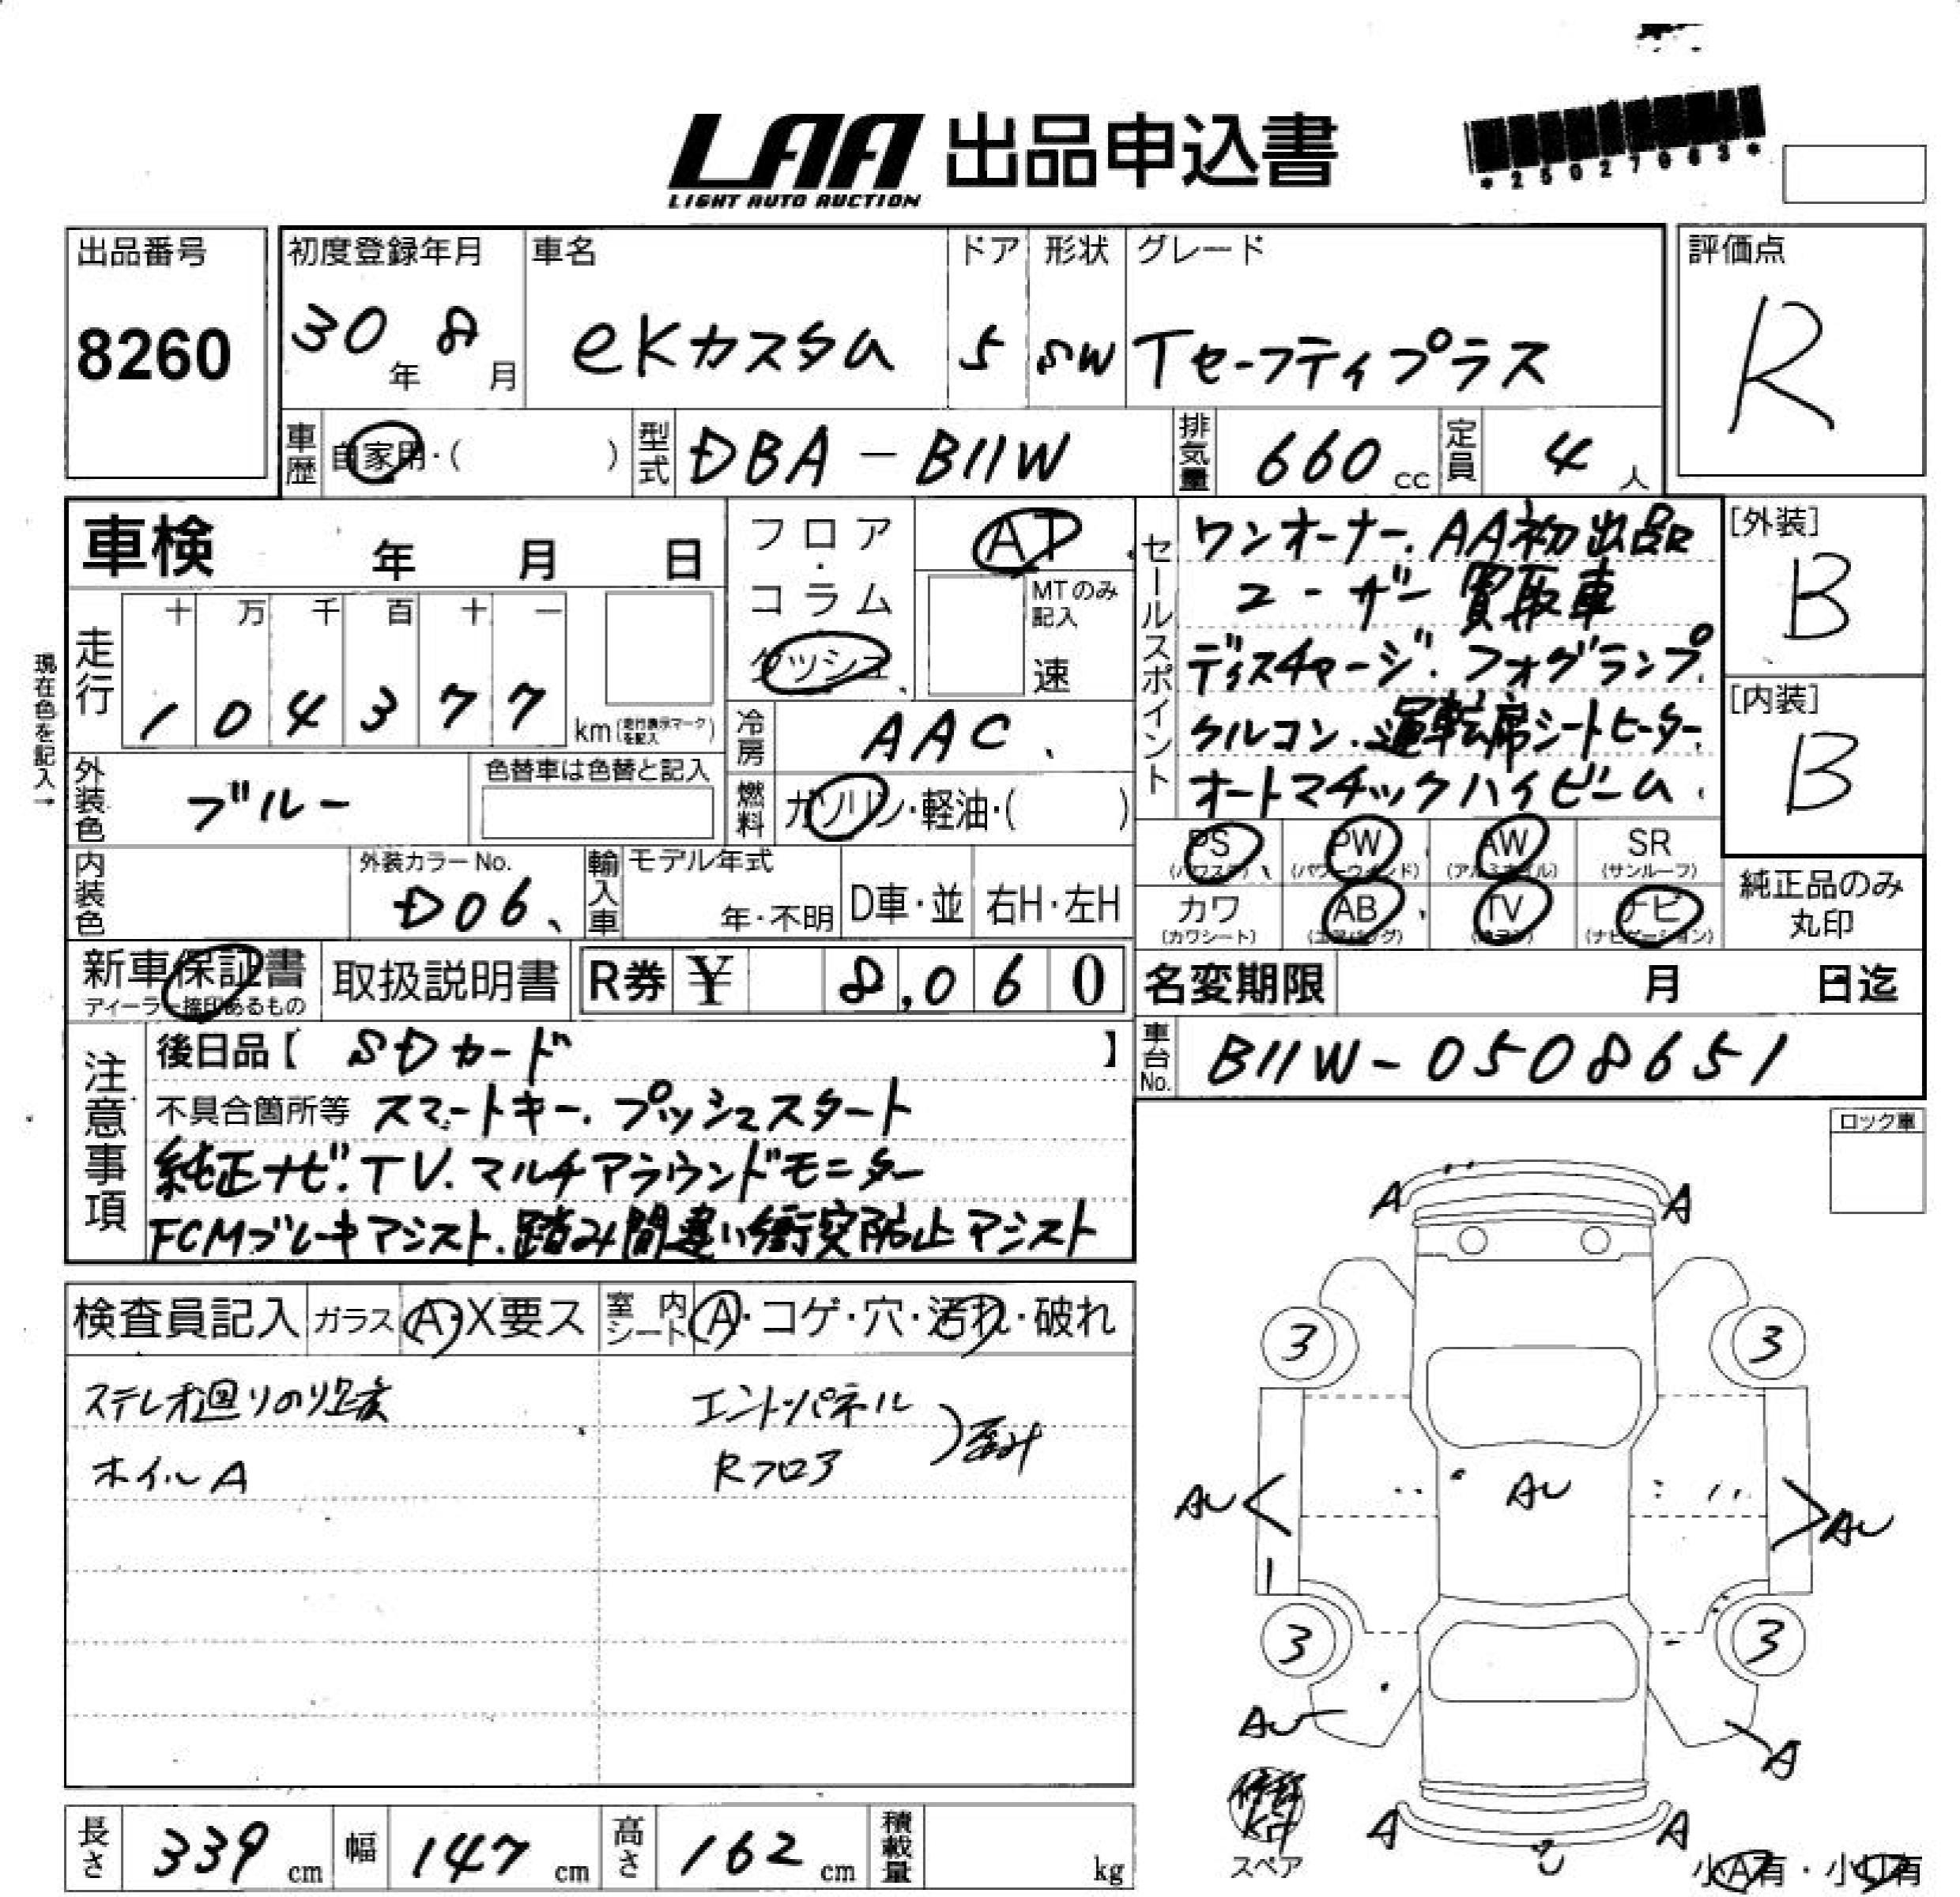 LAA 出品申込書
LIGHT AUTO AUCTION
*25027063*
出品番号
8260
初度登録年月
30年 8月
車名
eKカスタム
ドア
5
形状
SW
グレード
Tセーフティプラス
評価点
R
車歴 自家用・( )
型式 DBA-B11W
排気量 660 cc
定員 4人
車検 年 月 日
フロア・コラム
ダッシュ
AT
MTのみ記入
速
セールスポイント
ワンオーナー.AA初出品
ユーザー買取車
ディスチャージ.フォグランプ.
クルコン.運転席シートヒーター.
オートマチックハイビーム.
[外装]
B
[内装]
B
現在色を記入→
走行
十 万 千 百 十 一
1 0 4 3 7 7 km(走行表示マークを記入)
冷房 AAC
外装色 ブルー
色替車は色替と記入
燃料 ガソリン・軽油・( )
PS (パワステ) PW (パワーウインド) AW (アルミホイル) SR (サンルーフ)
カワ (カワシート) AB (エアバッグ) TV ナビ (ナビゲーション)
純正品のみ丸印
内装色
外装カラーNo.
D06
輸入車 モデル年式
年・不明 D車・並 右H・左H
新車保証書
ディーラー捺印あるもの
取扱説明書
R券 ¥ 8,060
名変期限 月 日迄
車台No. B11W-0508651
注意事項
後日品【 SDカード 】
不具合箇所等 スマートキー.プッシュスタート
純正ナビ.TV.マルチアラウンドモニター
FCMブレーキアシスト.踏み間違い衝突防止アシスト
ロック車
検査員記入 ガラス A・X要ス 室内シート A・コゲ・穴・汚れ・破れ
ステレオ廻りのり跡
ホイルA
エンドパネル
Rフロア
歪み
A A
3 3
AU AU AU
3 3
AU A
A A
修理KIT
スペア
小A有・小U有
長さ 339 cm 幅 147 cm 高さ 162 cm 積載量 kg